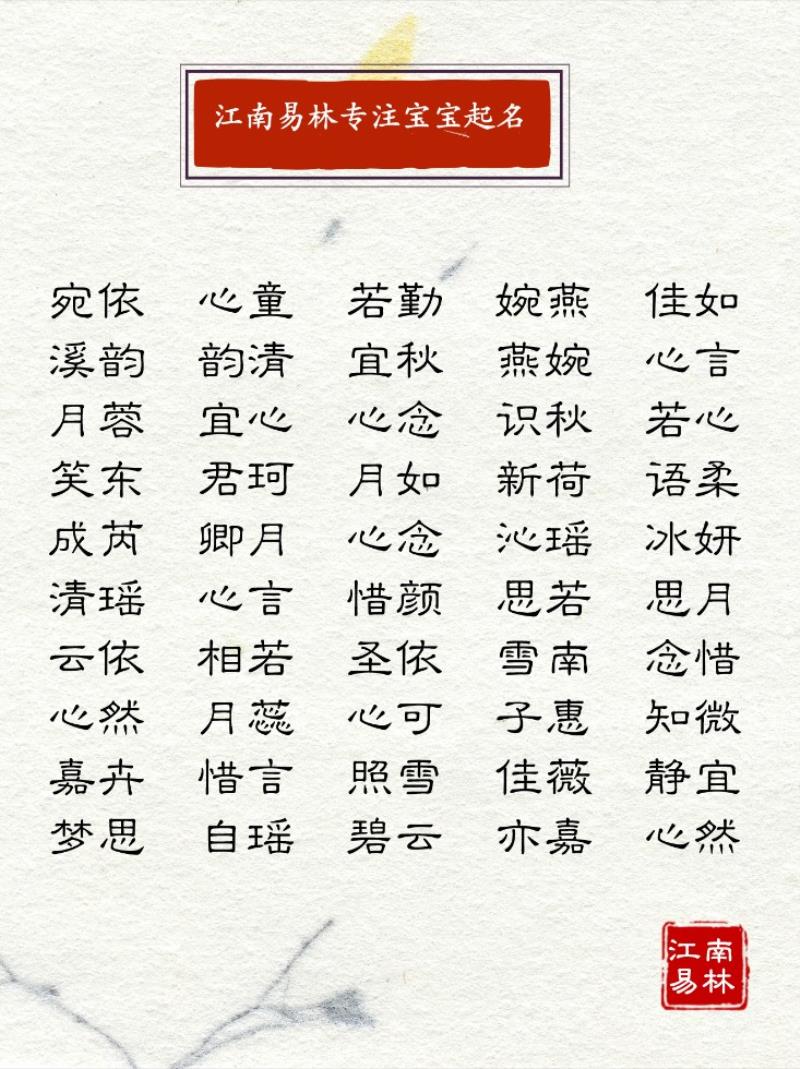 江南易林专注宝宝起名
宛依 心童 若勤 婉燕 佳如
溪韵 韵清 宜秋 燕婉 心言
月蓉 宜心 心念 识秋 若心
笑东 君珂 月如 新荷 语柔
成芮 卿月 心念 沁瑶 冰妍
清瑶 心言 惜颜 思若 思月
云依 相若 圣依 雪南 念惜
心然 月蕊 心可 子惠 知微
嘉卉 惜言 照雪 佳薇 静宜
梦思 自瑶 碧云 亦嘉 心然
江南
易林